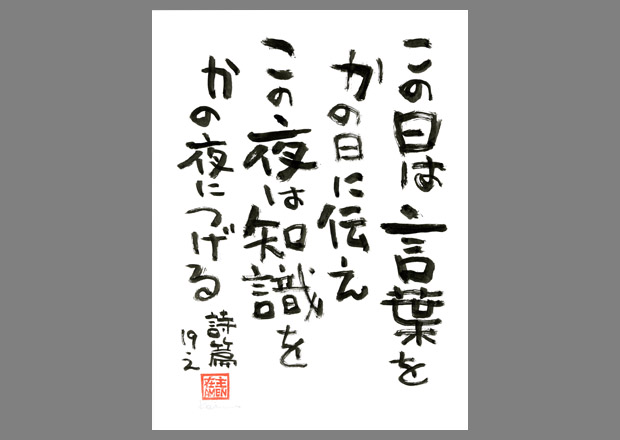 この日は言葉を
かの日に伝え
この夜は知識を
かの夜につげる
詩篇
19.2
主在
AMEN